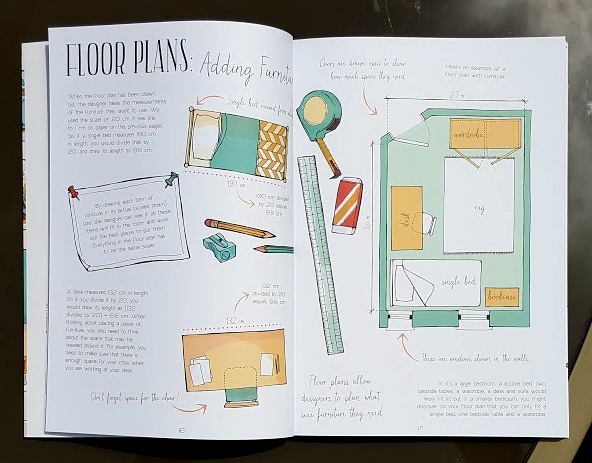 FLOOR PLANS: Adding Furnitu
When the floor plan has been drawn
out, the designer takes the measurements
of the furniture they want to use. We
used the scale of 20 cm in real life
to 1 cm on paper on the previous pages.
So if a single bed measures 190 cm
in length, you would divide that by
20, and draw its length as 9.5 cm.
Single bed viewed from
190 cm
190 cm divided
by 20 equals
9.5 cm
By drawing each item of
furniture in its actual (scaled down)
size, the designer can see if all these
items will fit in the room and work
out the best places to put them.
Everything in the floor plan has
to be the same scale.
A desk measures 132 cm in length.
So if you divide it by 20, you
would draw its length as (132
divided by 20) = 6.6 cm. When
thinking about placing a piece of
furniture, you also need to think
about the space that may be
needed around it. For example, you
need to make sure that there is
enough space for your chair when
you are working at your desk.
132 cm
divided by 20
equals 6.6 cm
132 cm
Don't forget space for the chair!
16
Doors are drawn open to show
how much space they need
Here's an example of a
floor plan with furniture
2.7 m
wardrobe
rug
desk
single bed
bookcase
These are windows shown in the walls
Floor plans allow
designers to plan what
size furniture they need
If it is a large bedroom, a double bed, two
bedside tables, a wardrobe, a desk and sofa would
likely fit in, but in a smaller bedroom, you might
discover on your floor plan that you can only fit a
single bed, one bedside table and a wardrobe.
17